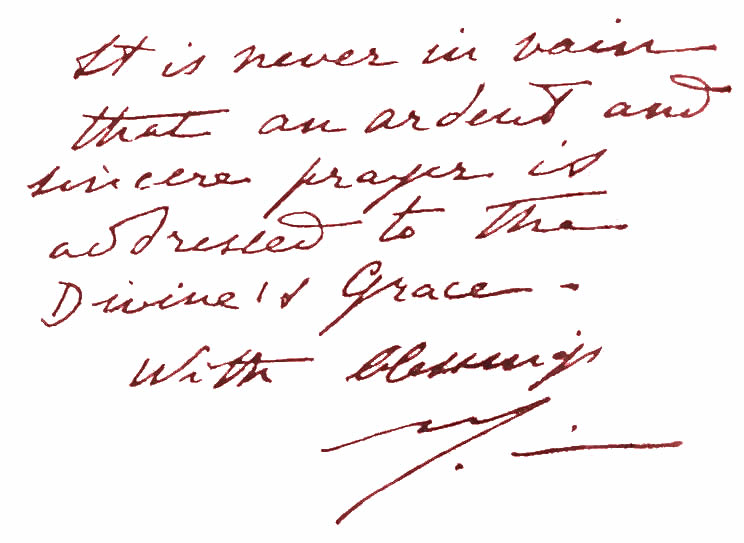 It is never in vain
that an ardent and
sincere prayer is
addressed to the
Divine's Grace.
With blessings